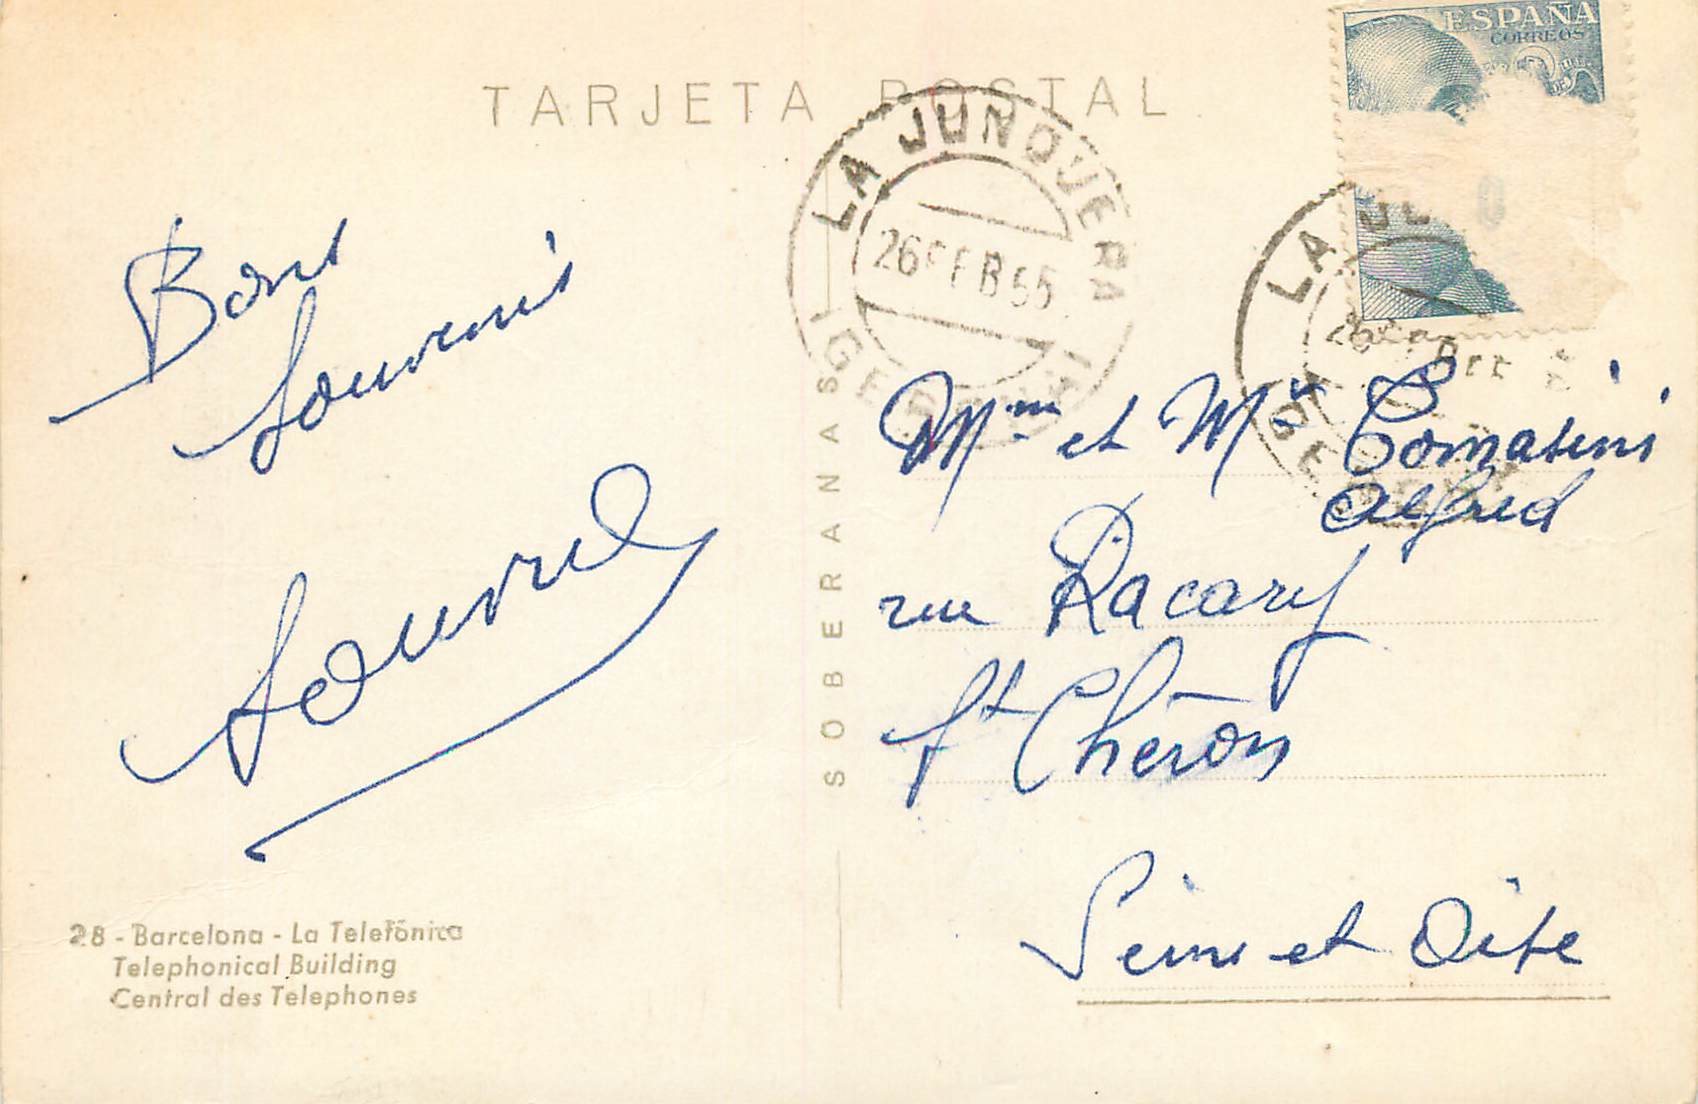 TARJETA POSTAL
ESPAÑA
CORREOS
LA JUNQUERA
26 FEB 55
(GERONA)
LA JU
26
GE
Bons
Souvenirs
SOBERANAS
Mme et Mr Tomasini
Alfred
rue Racary
St Chéron
Seine et Oise
28 - Barcelona - La Telefónica
Telephonical Building
Central des Telephones